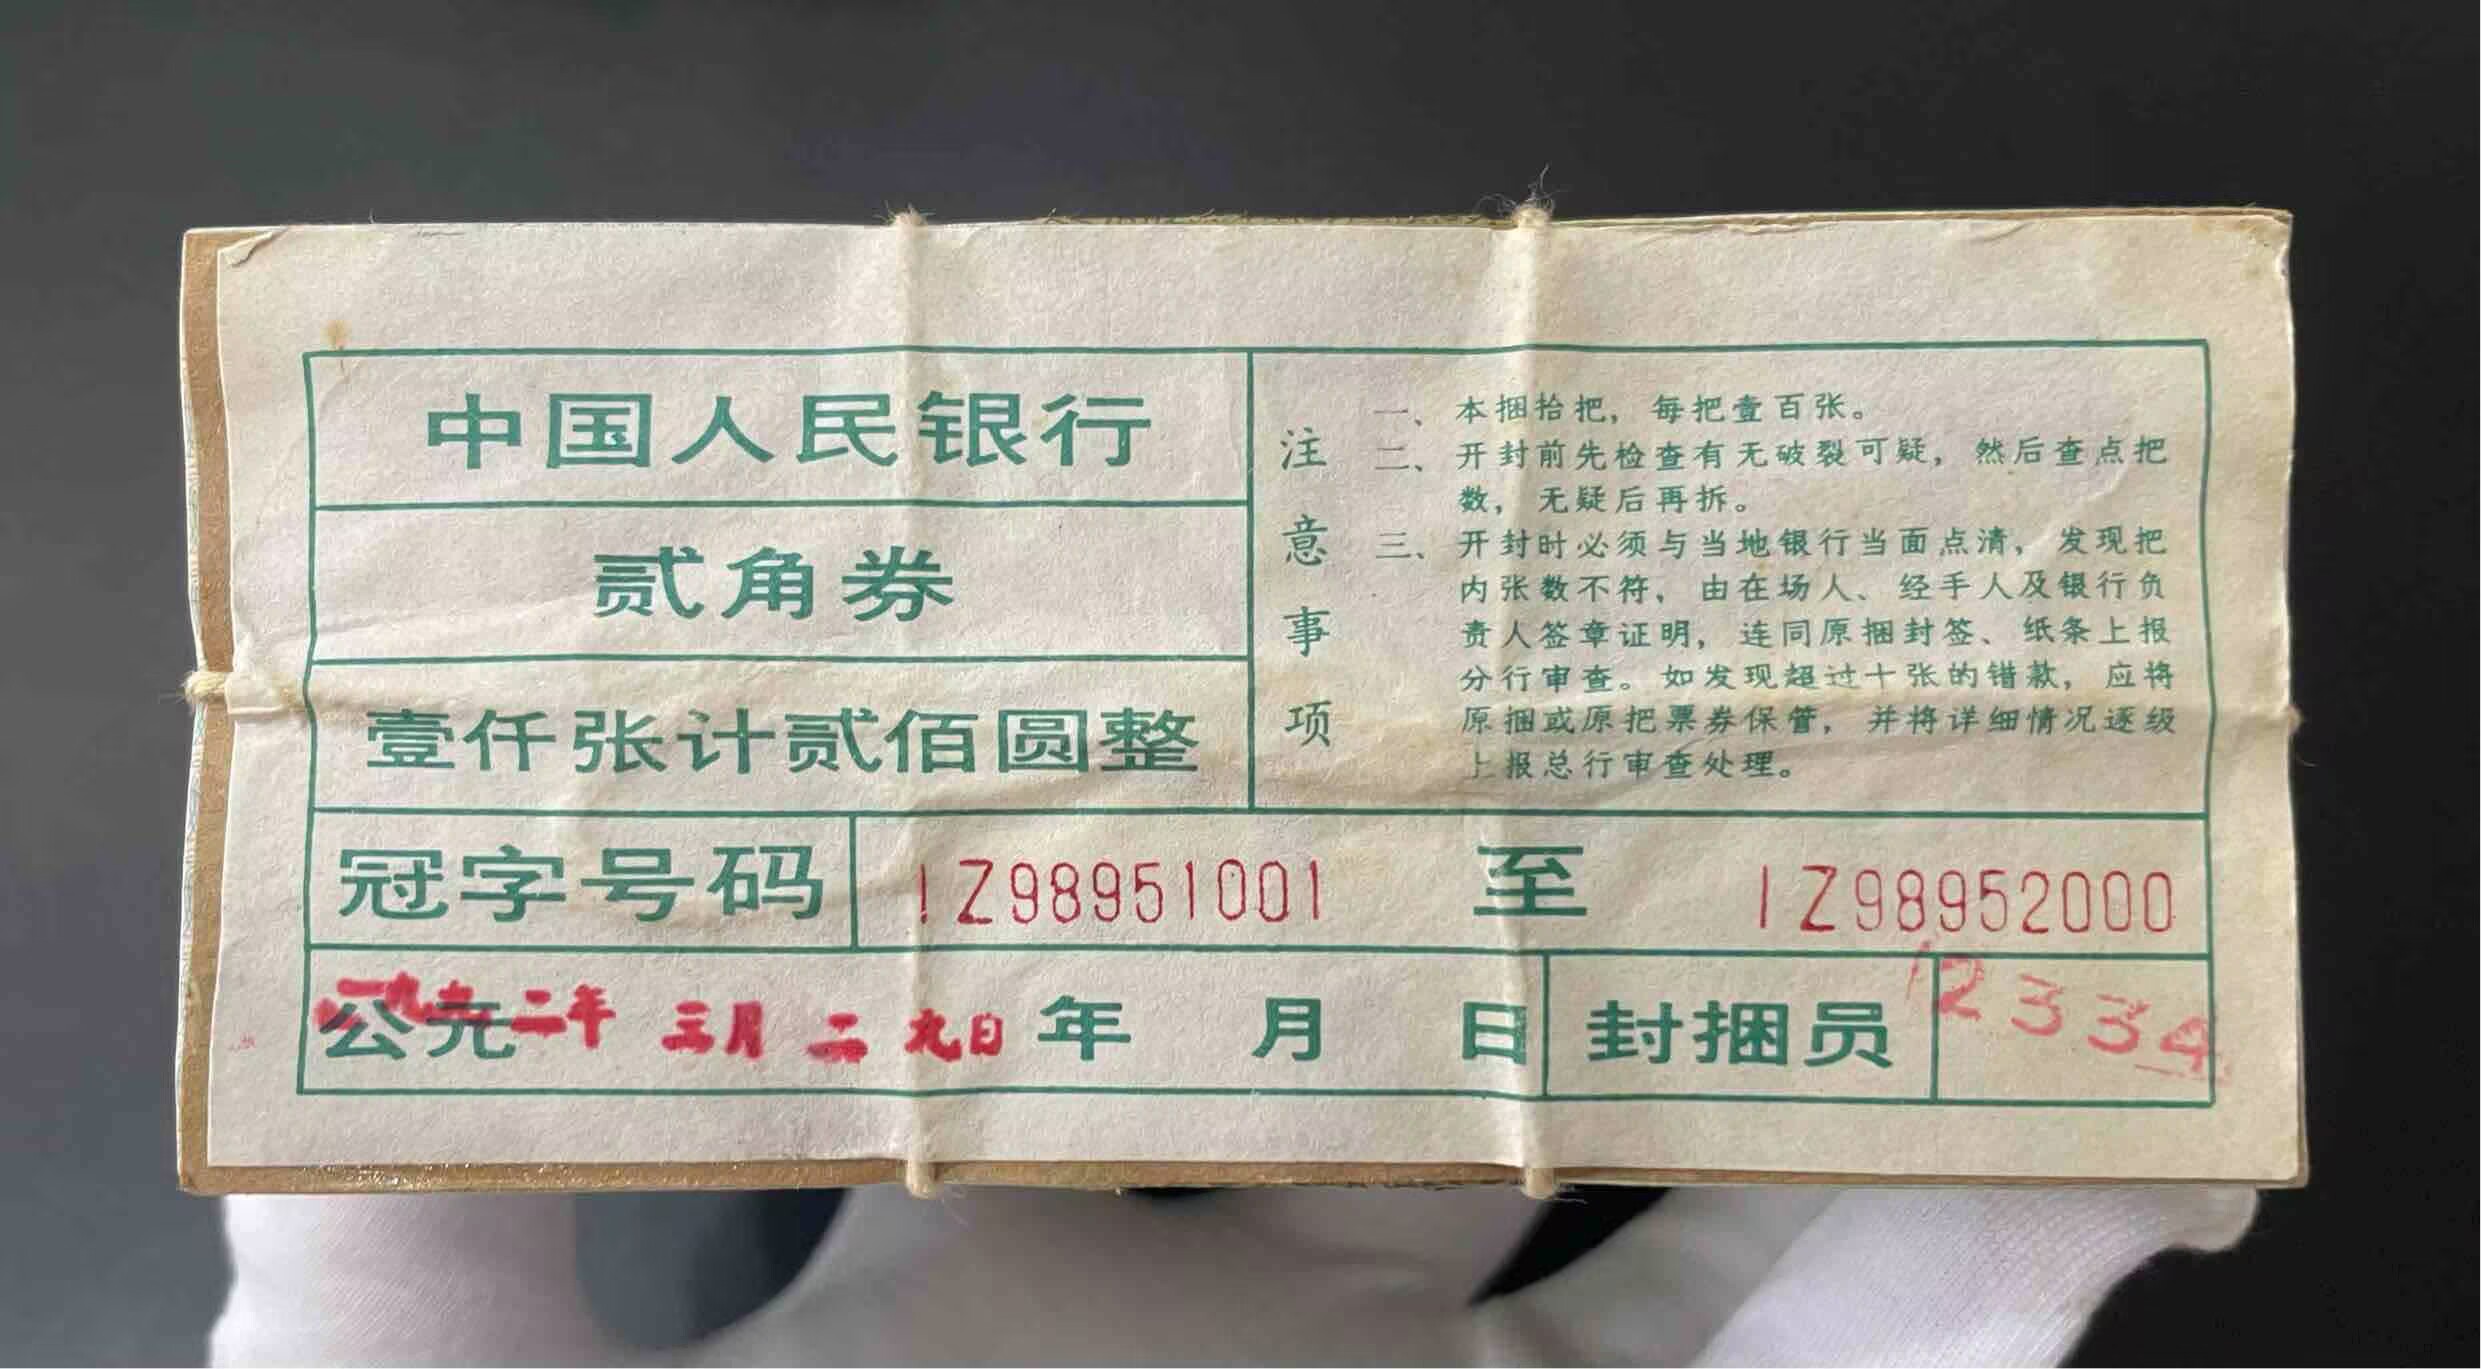 中国人民银行
贰角券
壹仟张计贰佰圆整
注意事项
一、本捆拾把，每把壹百张。
二、开封前先检查有无破裂可疑，然后查点把
数，无疑后再拆。
三、开封时必须与当地银行当面点清，发现把
内张数不符，由在场人、经手人及银行负
责人签章证明，连同原捆封签、纸条上报
分行审查。如发现超过十张的错款，应将
原捆或原把票券保管，并将详细情况逐级
上报总行审查处理。
冠字号码 IZ98951001 至 IZ98952000
公元 二年 三月 二九日 年 月 日 封捆员 12334